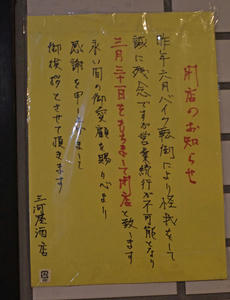 閉店のお知らせ
昨年六月バイク転倒により怪我をして
誠に残念ですが営業続行が不可能となり
三月三十一日をもちまして閉店と致します
永い間の御愛顧を賜り心より
感謝を申し上げまして
御挨拶とさせて頂きます
三河屋酒店